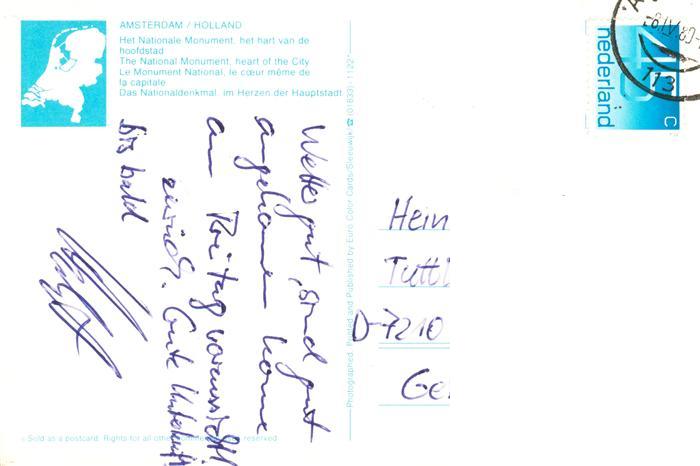 AMSTERDAM / HOLLAND
Het Nationale Monument, het hart van de
hoofdstad
The National Monument, heart of the City
Le Monument National, le cœur même de
la capitale
Das Nationaldenkmal, im Herzen der Hauptstadt
Wetter gut, sind gut
angekommen komme
am Freitag voraussichtl.
zurück. Gute Unterkunft
Bis bald
Photographed, Printed and Published by Euro Color Cards/Sleeuwijk ☎ (01833)-1122*
Sold as a postcard. Rights for all other reserved
45 c
nederland
113
Hein
Tuttl
D-7210
Ge